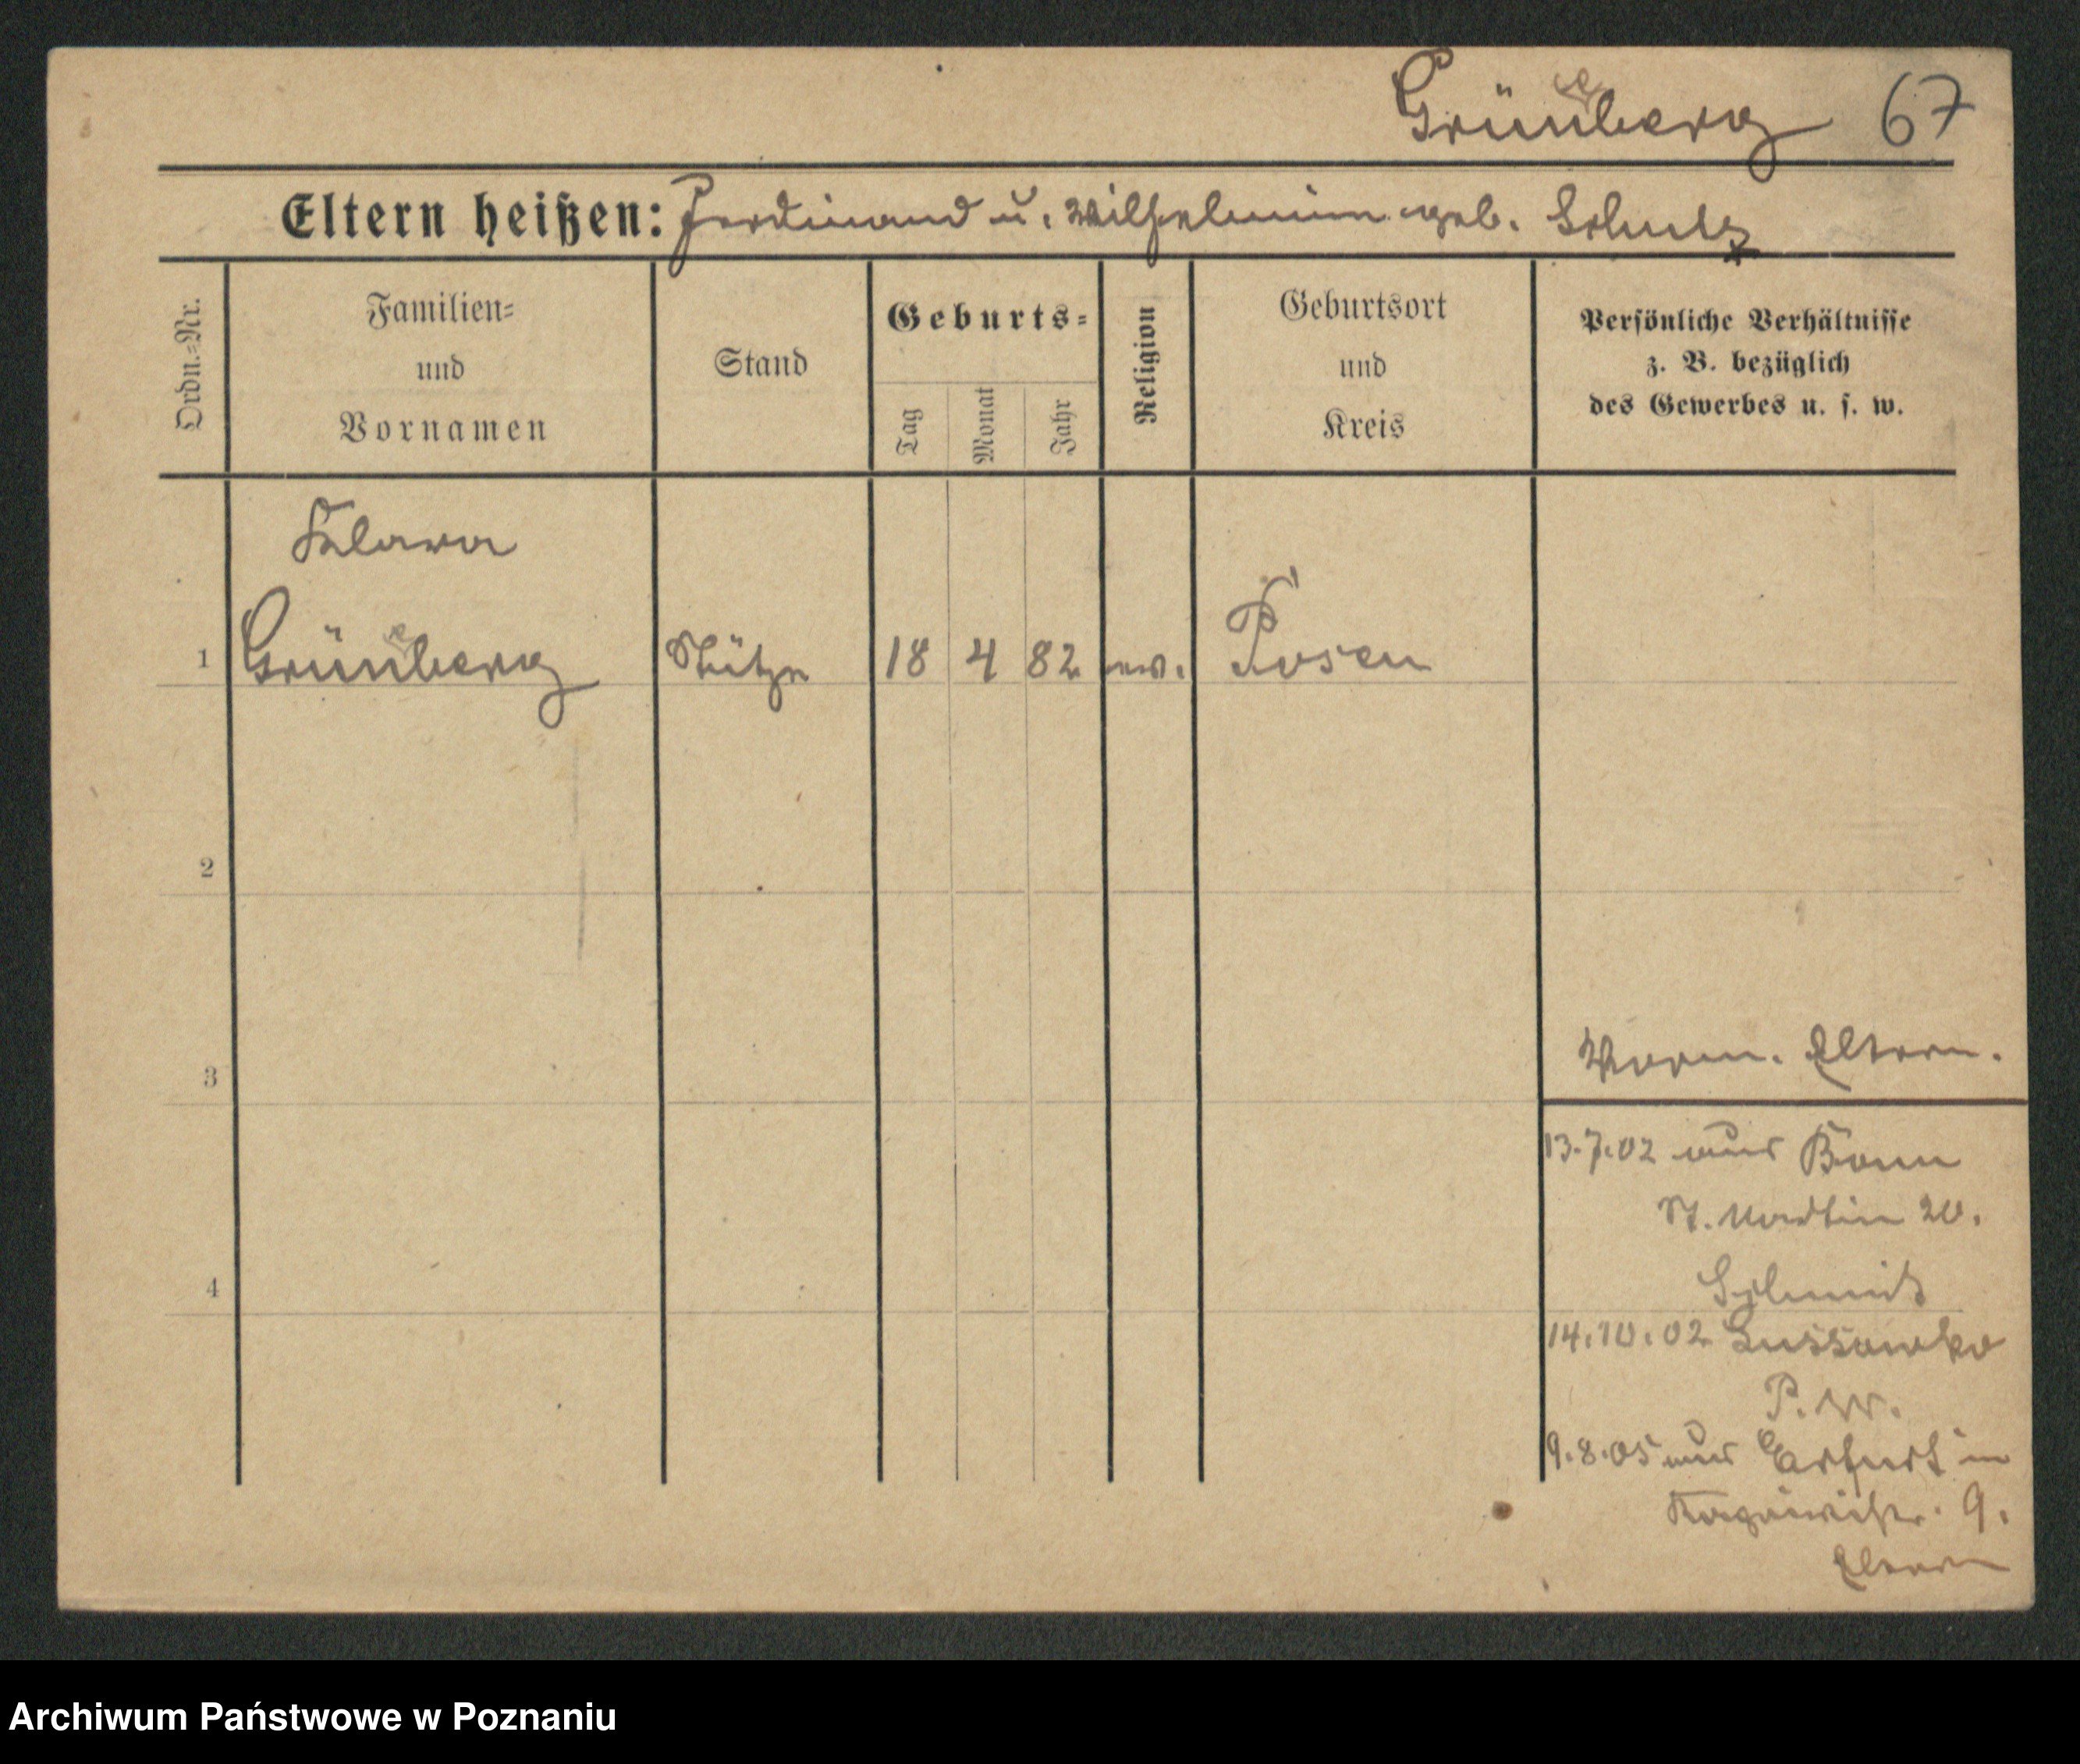 Grüneberg 67
Eltern heißen: Ferdinand u. Wilhelmine geb. Schulz
Ordn.=Nr.
Familien=
und
Vornamen
Stand
Geburts=
Tag
Monat
Jahr
Religion
Geburtsort
und
Kreis
Persönliche Verhältnisse
z. B. bezüglich
des Gewerbes u. s. w.
Klara
1 Grüneberg Stütze 18 4 82 ev. Posen
2
3
4
Vorm. Eltern.
13.7.02 aus Bonn
St. Martin 20.
Schmidt
14.10.02 Lussowko
P. W.
9.8.05 aus Erfurt in
9.
Eltern
Archiwum Państwowe w Poznaniu